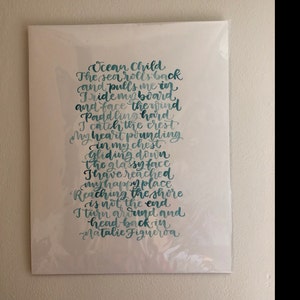 Ocean Child
The sea rolls back
and pulls me in
I ride my board
and face the wind
Paddling hard
I catch the crest
my heart pounding
in my chest
Gliding down
the glassy face
I have reached
my happy place
Reaching the shore
is not the end
I turn around and
head back in
Natalie Figueroa